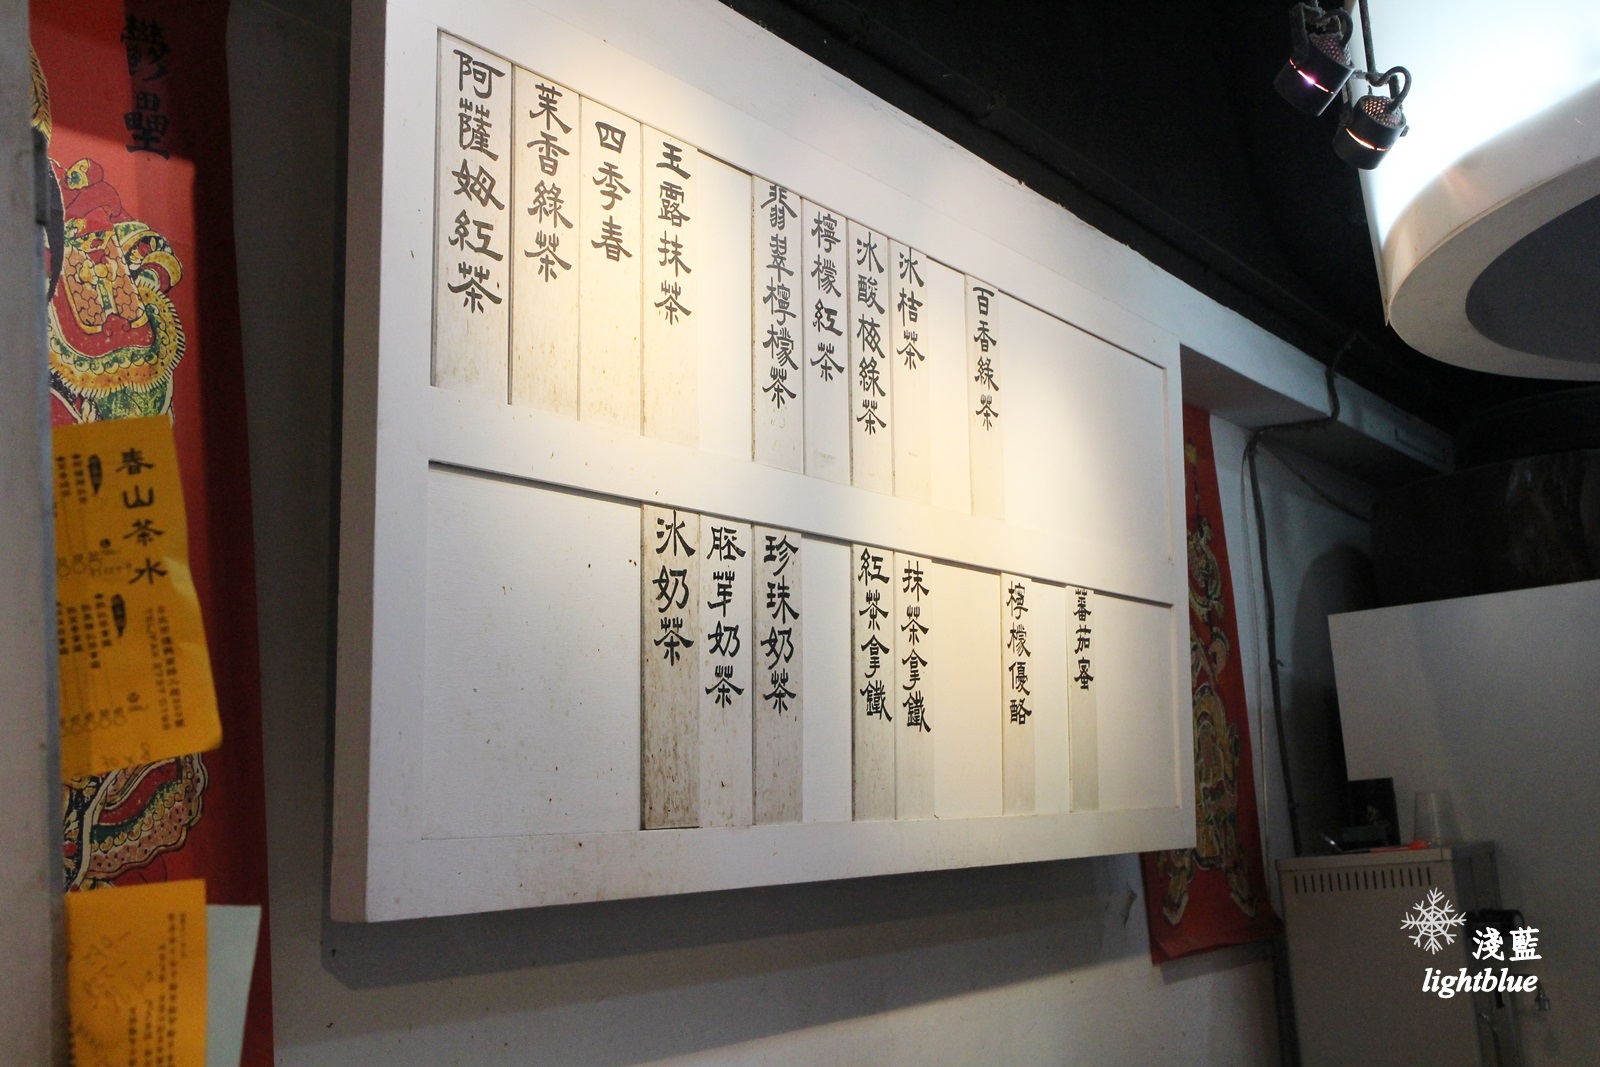 鬱壘
阿薩姆紅茶
茉香綠茶
四季春
玉露抹茶
翡翠檸檬茶
檸檬紅茶
冰酸梅綠茶
冰桔茶
百香綠茶
冰奶茶
胚芽奶茶
珍珠奶茶
紅茶拿鐵
抹茶拿鐵
檸檬優酪
蕃茄蜜
春山茶水
淺藍
lightblue